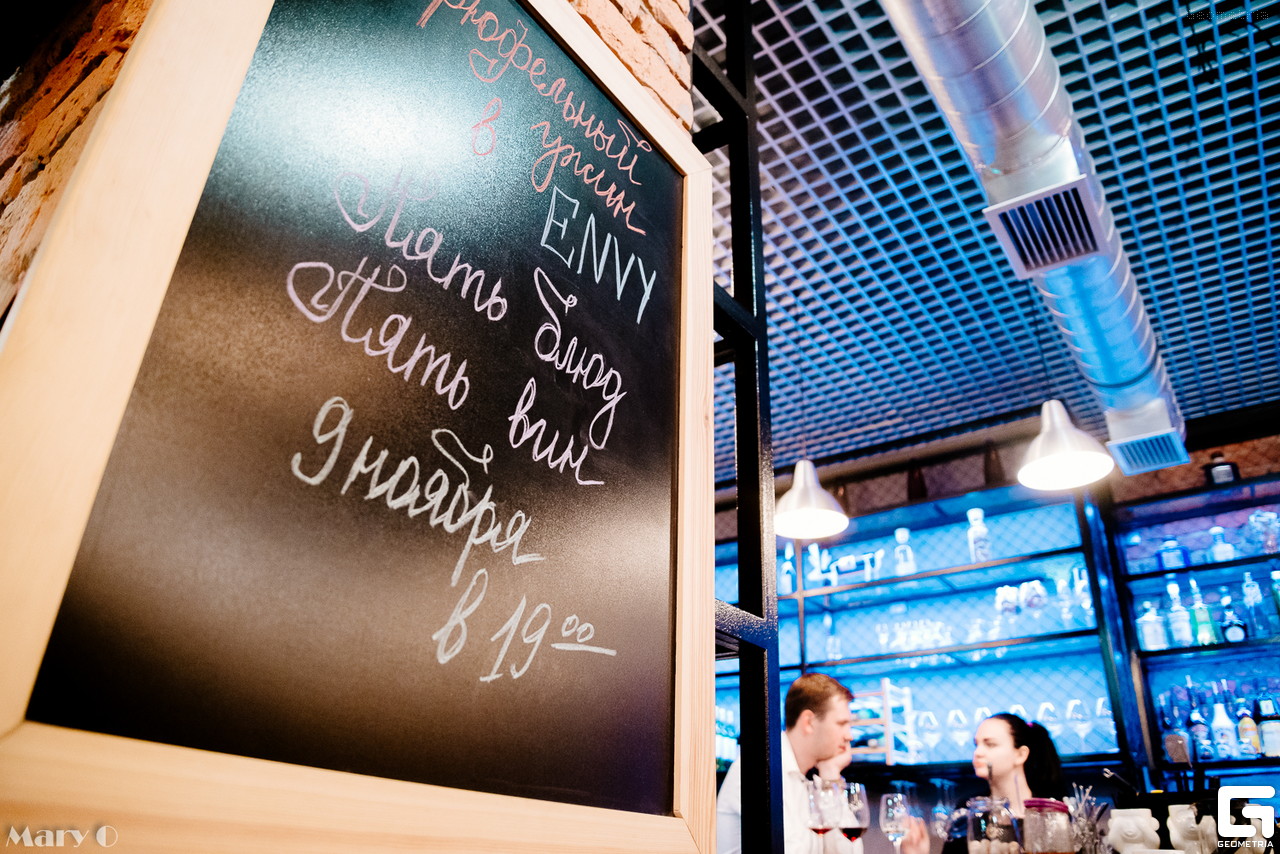 ужин
в
ENVY
Пять блюд
Пять вин
9 ноября
в 19 00
Mary O
GEOMETRIA